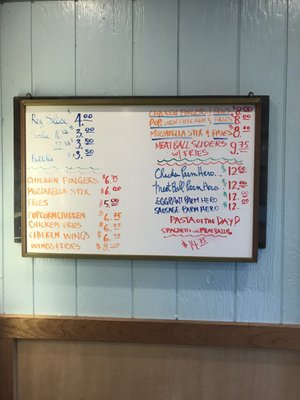 Reg Slice $4.00
Soda
Bottles $3.50
CHICKEN FINGERS $6.75
MOZZARELLA STIX $6.00
FRIES $5.00
POPCORN CHICKEN $6.75
CHICKEN FRIES
CHICKEN WINGS
WINGS & FRIES
CHICKEN FINGERS & FRIES
POPCORN CHICKEN & FRIES
MOZZARELLA STIX & FRIES $8.00
MEATBALL SLIDERS
W/ FRIES 9.75
Chicken Parm Hero... $12
Meat Ball Parm Hero $12
EGGPLANT PARM HERO $12
SAUSAGE PARM HERO $12
PASTA OF THE DAY
SPAGHETTI w/ MEATBALLS